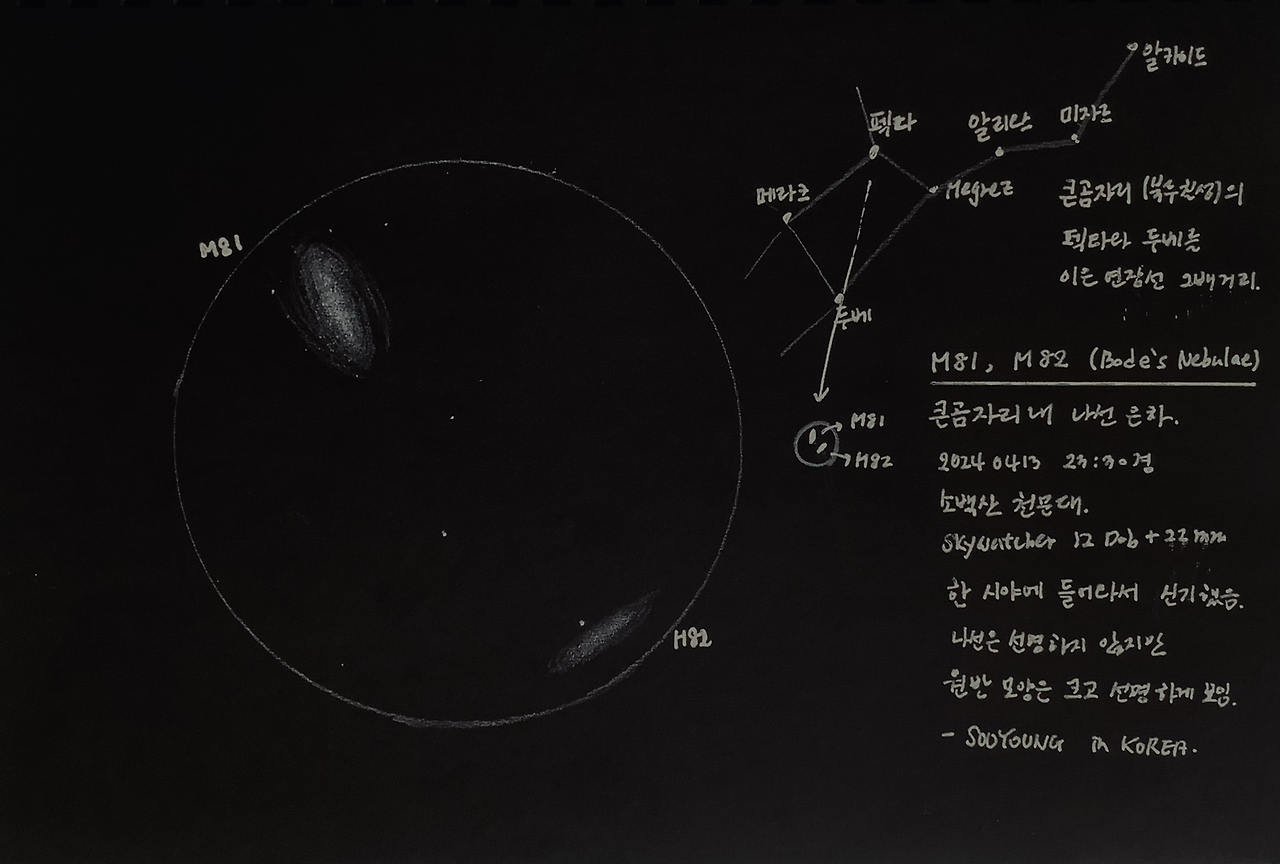 알카이드
펙다
알리오스
미자르
메라크
Megrez
두베
큰곰자리 (북두칠성)의
펙다와 두베를
이은 연장선 2배거리.
M81
M82
M81
M82
M81, M82 (Bode's Nebulae)
큰곰자리 내 나선 은하.
2024 04 13 23:30경
소백산 천문대.
Skywatcher 12 Dob + 22mm
한 시야에 들어와서 신기했음.
나선은 선명하지 않지만
원반 모양은 크고 선명하게 보임.
- SOOYOUNG in KOREA.